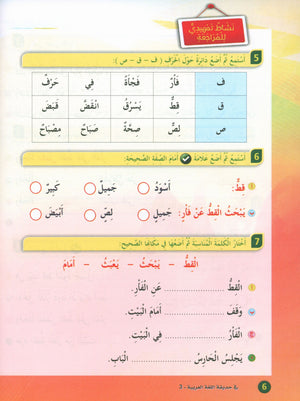 نَشَاطٌ تَمْهِيدِيٌّ
لِلْمُرَاجَعَةِ
5 أَسْتَمِعُ ثُمَّ أَضَعُ دَائِرَةً حَوْلَ الْحَرْفِ ( ف - ق - ص ) :
ف فَأْرٌ فَجْأَةً فِي حَرْفٌ
ق قِطٌّ يَسْرِقُ انْقَضَّ قَبَضَ
ص لِصٌّ صِحَّةٌ صَبَاحٌ مِصْبَاحٌ
6 أَسْتَمِعُ ثُمَّ أَضَعُ عَلَامَةَ ✓ أَمَامَ الصِّفَةِ الصَّحِيحَةِ:
قِطٌّ: أَسْوَدُ جَمِيلٌ كَبِيرٌ
يَبْحَثُ الْقِطُّ عَنْ فَأْرٍ: جَمِيلٍ لِصٍّ أَبْيَضَ
7 أَخْتَارُ الْكَلِمَةَ الْمُنَاسِبَةَ ثُمَّ أَضَعُهَا فِي مَكَانِهَا الصَّحِيحِ:
الْقِطُّ - يَبْحَثُ - يَعْبَثُ - أَمَامَ
الْقِطُّ ............ عَنِ الْفَأْرِ.
وَقَفَ ............ أَمَامَ الْبَيْتِ.
الْفَأْرُ ............ فِي الْبَيْتِ.
يَجْلِسُ الْحَارِسُ ............ الْبَابِ.
في حديقة اللغة العربية - 3
6